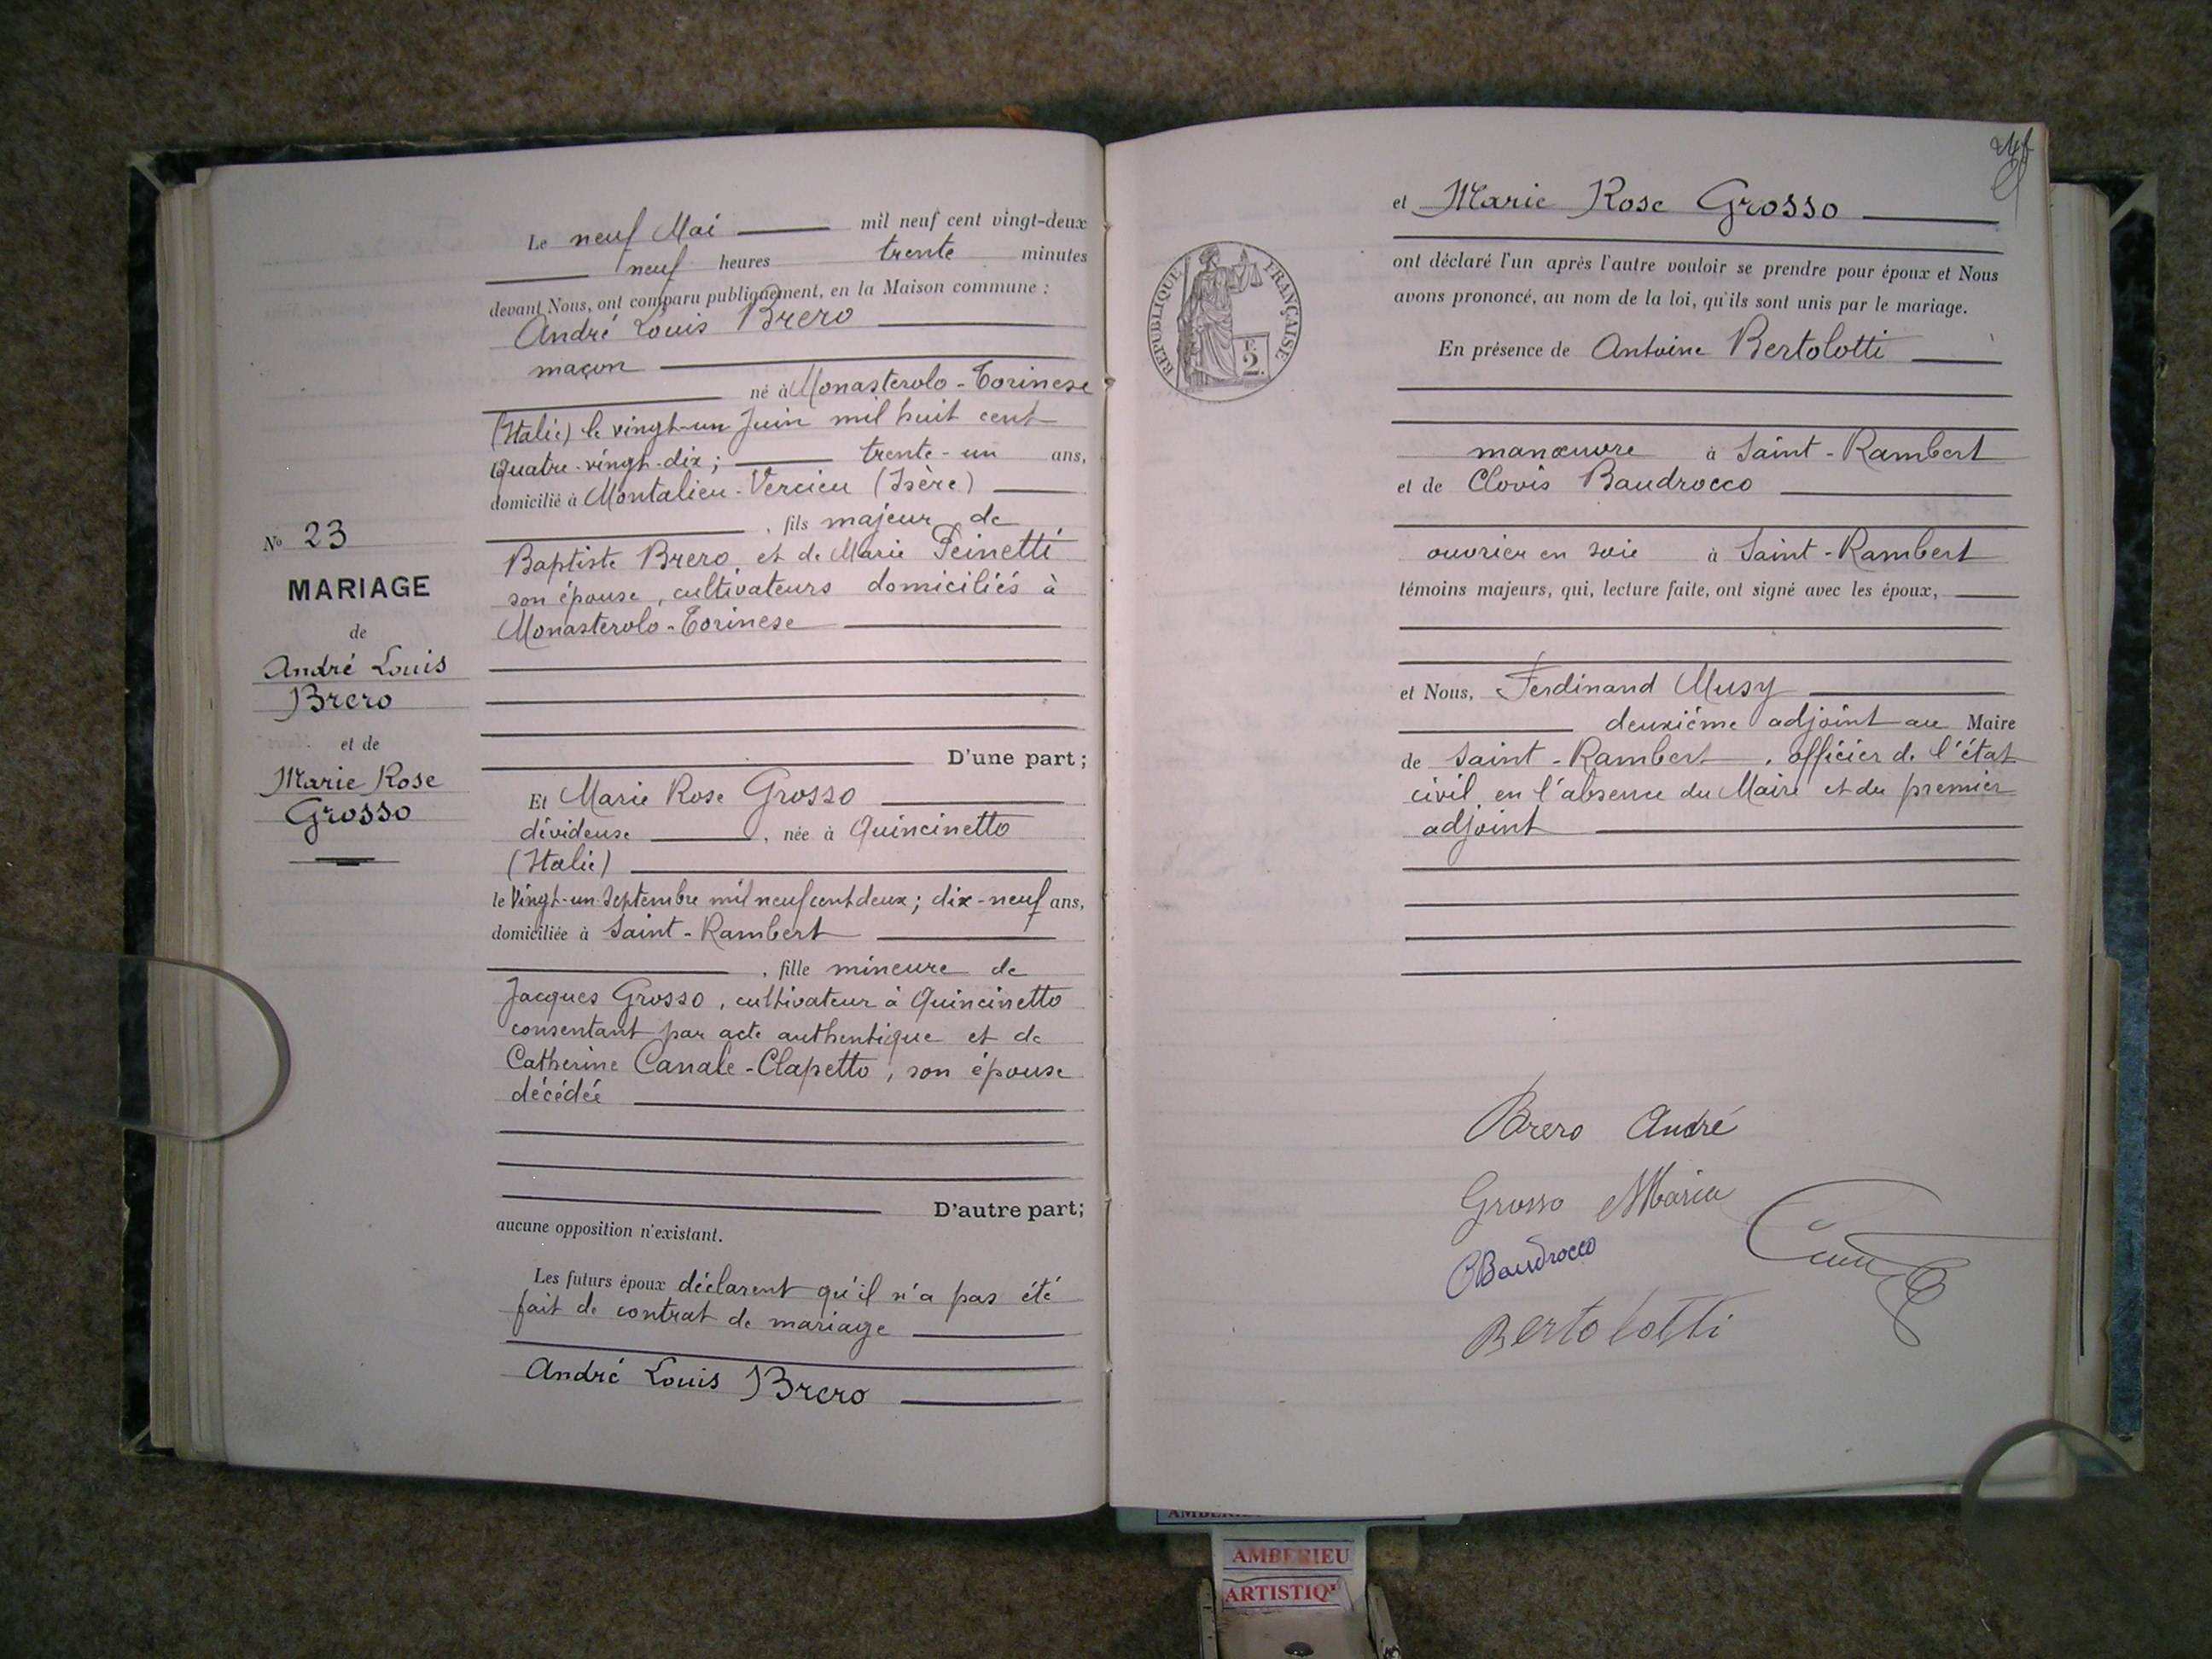 Le neuf Mai mil neuf cent vingt-deux
neuf heures trente minutes
devant Nous, ont comparu publiquement, en la Maison commune :
André Louis Brero
maçon
né à Monasterolo-Torinese
(Italie) le vingt-un Juin mil huit cent
quatre-vingt-dix ; trente-un ans,
domicilié à Montalieu-Vercieu (Isère)
, fils majeur de
Baptiste Brero, et de Marie Peinetti
son épouse, cultivateurs domiciliés à
Monasterolo-Torinese
D'une part ;
Et Marie Rose Grosso
dévideuse , née à Quincinetto
(Italie)
le Vingt-un Septembre mil neuf cent deux ; dix-neuf ans,
domiciliée à Saint-Rambert
, fille mineure de
Jacques Grosso, cultivateur à Quincinetto
consentant par acte authentique et de
Catherine Canale-Clapetto, son épouse
décédée
D'autre part ;
aucune opposition n'existant.
Les futurs époux déclarent qu'il n'a pas été
fait de contrat de mariage
André Louis Brero
No 23
MARIAGE
de
André Louis
Brero
et de
Marie Rose
Grosso
et Marie Rose Grosso
ont déclaré l'un après l'autre vouloir se prendre pour époux et Nous
avons prononcé, au nom de la loi, qu'ils sont unis par le mariage.
En présence de Antoine Bertolotti
manœuvre à Saint-Rambert
et de Clovis Baudrocco
ouvrier en soie à Saint-Rambert
témoins majeurs, qui, lecture faite, ont signé avec les époux,
et Nous, Ferdinand Musy
deuxième adjoint au Maire
de Saint-Rambert, officier de l'état
civil en l'absence du Maire et du premier
adjoint
REPUBLIQUE FRANÇAISE
F.
2.
Brero André
Grosso Maria
CBaudrocco
Bertolotti
AMBERIEU
ARTISTIQ